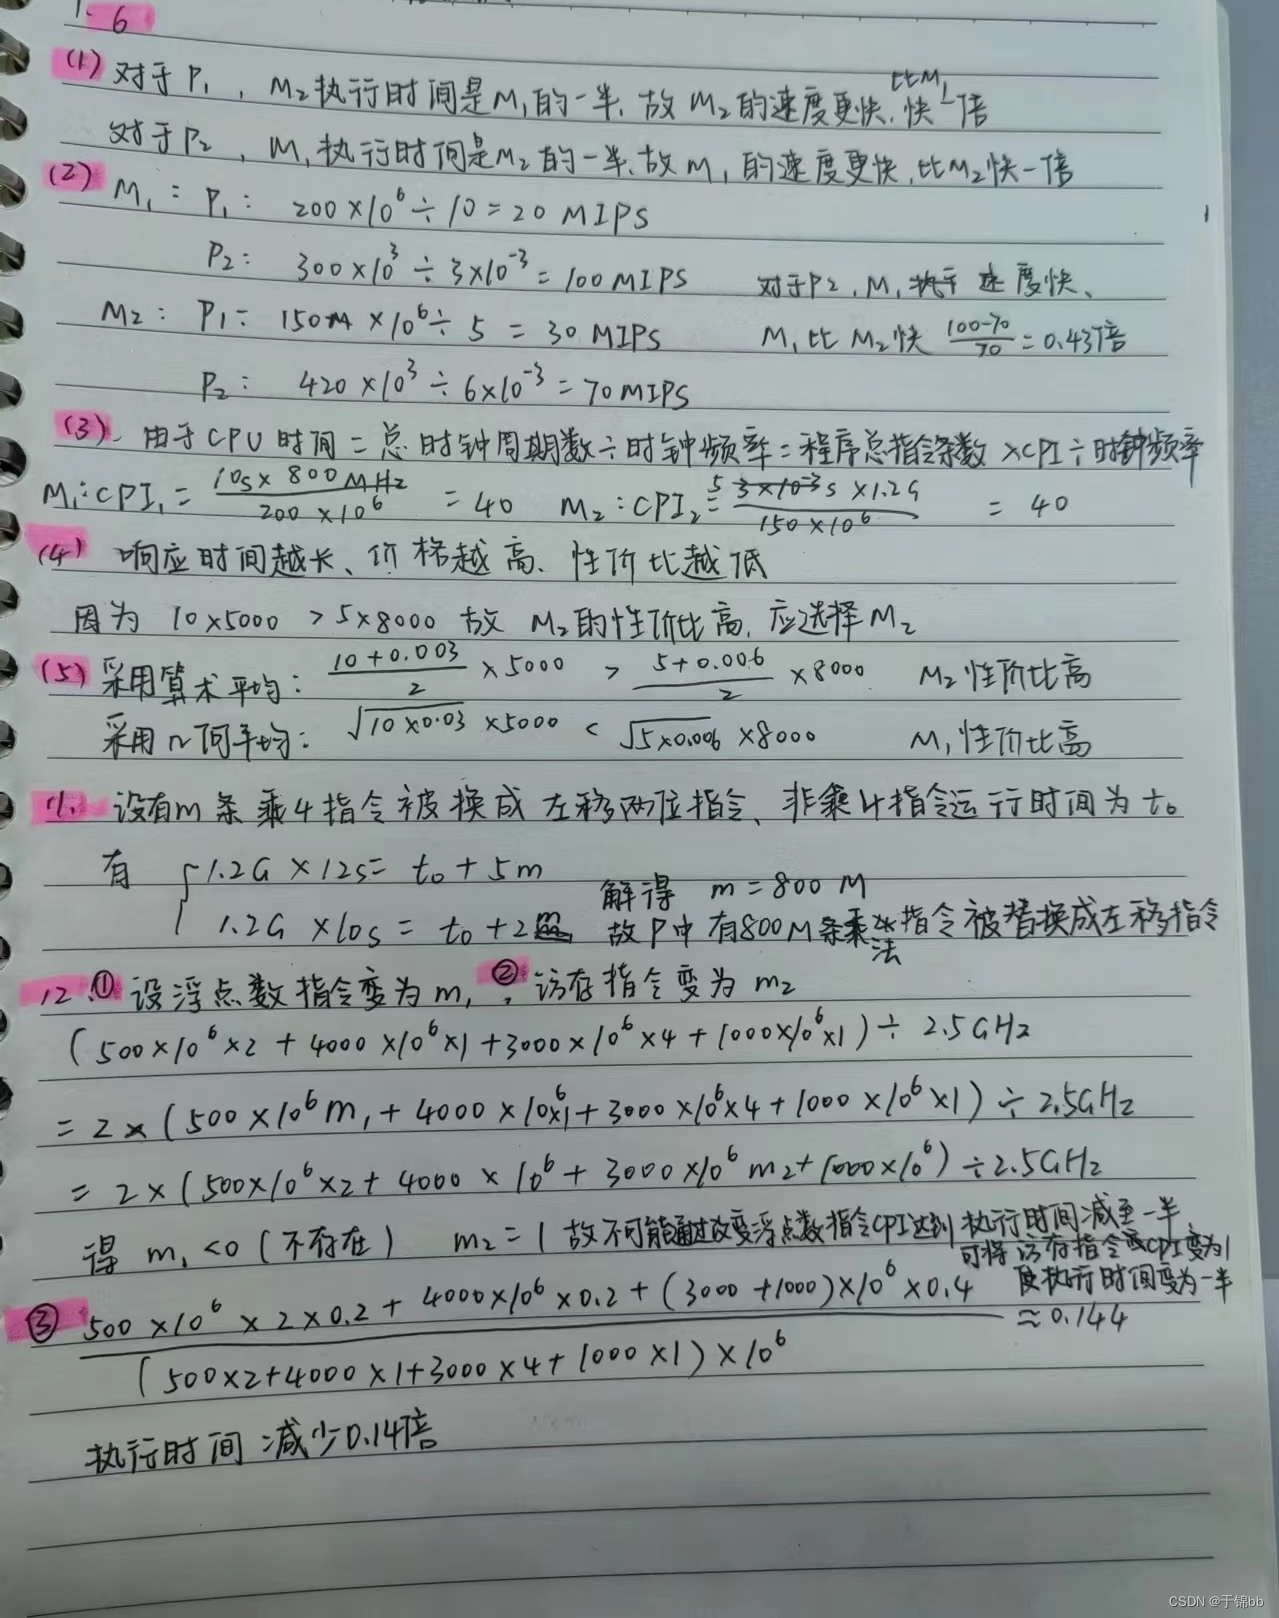 1.6
(1) 对于P₁, M₂执行时间是M₁的一半,故M₂的速度更快,比M₁快一倍
对于P₂, M₁执行时间是M₂的一半,故M₁的速度更快,比M₂快一倍
(2) M₁: P₁: 200×10⁶÷10=20 MIPS
P₂: 300×10³÷3×10⁻³=100MIPS 对于P2, M₁执行速度快、
M₂: P₁: 150×10⁶÷5=30 MIPS M₁比M₂快 (100-70)/70=0.43倍
P₂: 420×10³÷6×10⁻³=70MIPS
(3)、由于CPU时间=总时钟周期数÷时钟频率=程序总指令条数×CPI÷时钟频率
M₁:CPI₁=(10s×800MHz)/(200×10⁶)=40 M₂:CPI₂=(5s×1.2G)/(150×10⁶)=40
(4) 响应时间越长、价格越高、性价比越低
因为10×5000>5×8000 故M₂的性价比高,应选择M₂
(5) 采用算术平均: (10+0.003)/2×5000 > (5+0.006)/2×8000 M₂性价比高
采用几何平均: √(10×0.03)×5000 < √(5×0.006)×8000 M₁性价比高
11. 设有m条乘4指令被换成左移两位指令、非乘4指令运行时间为t₀
有 {1.2G×12s=t₀+5m
1.2G×10s=t₀+2m 解得 m=800M
故P中有800M条乘法指令被替换成左移指令
12.① 设浮点数指令变为m₁, ②访存指令变为m₂
(500×10⁶×2+4000×10⁶×1+3000×10⁶×4+1000×10⁶×1)÷2.5GHz
=2×(500×10⁶m₁+4000×10⁶×1+3000×10⁶×4+1000×10⁶×1)÷2.5GHz
=2×(500×10⁶×2+4000×10⁶+3000×10⁶m₂+1000×10⁶)÷2.5GHz
得 m₁<0(不存在) m₂=1 故不可能通过改变浮点数指令CPI达到执行时间减至一半
可将访存指令CPI变为1
使执行时间变为一半
③ (500×10⁶×2×0.2+4000×10⁶×0.2+(3000+1000)×10⁶×0.4)/((500×2+4000×1+3000×4+1000×1)×10⁶) ≈0.144
执行时间减少0.14倍
CSDN @于锦bb